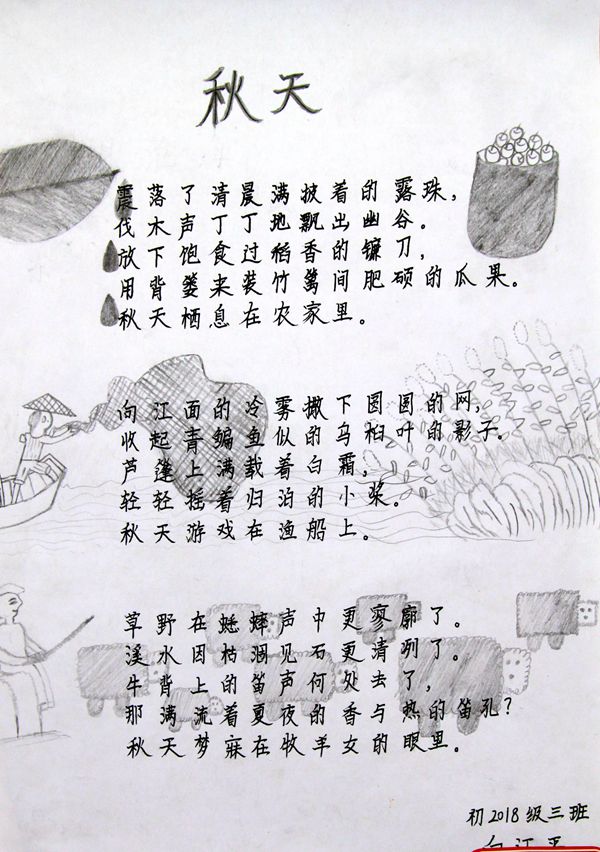 秋天
震落了清晨满披着的露珠，
伐木声丁丁地飘出幽谷。
放下饱食过稻香的镰刀，
用背篓来装竹篱间肥硕的瓜果。
秋天栖息在农家里。
向江面的冷雾撒下圆圆的网，
收起青鳊鱼似的乌桕叶的影子。
芦篷上满载着白霜，
轻轻摇着归泊的小桨。
秋天游戏在渔船上。
草野在蟋蟀声中更寥廓了。
溪水因枯涸见石更清冽了。
牛背上的笛声何处去了，
那满流着夏夜的香与热的笛孔？
秋天梦寐在牧羊女的眼里。
初2018级三班